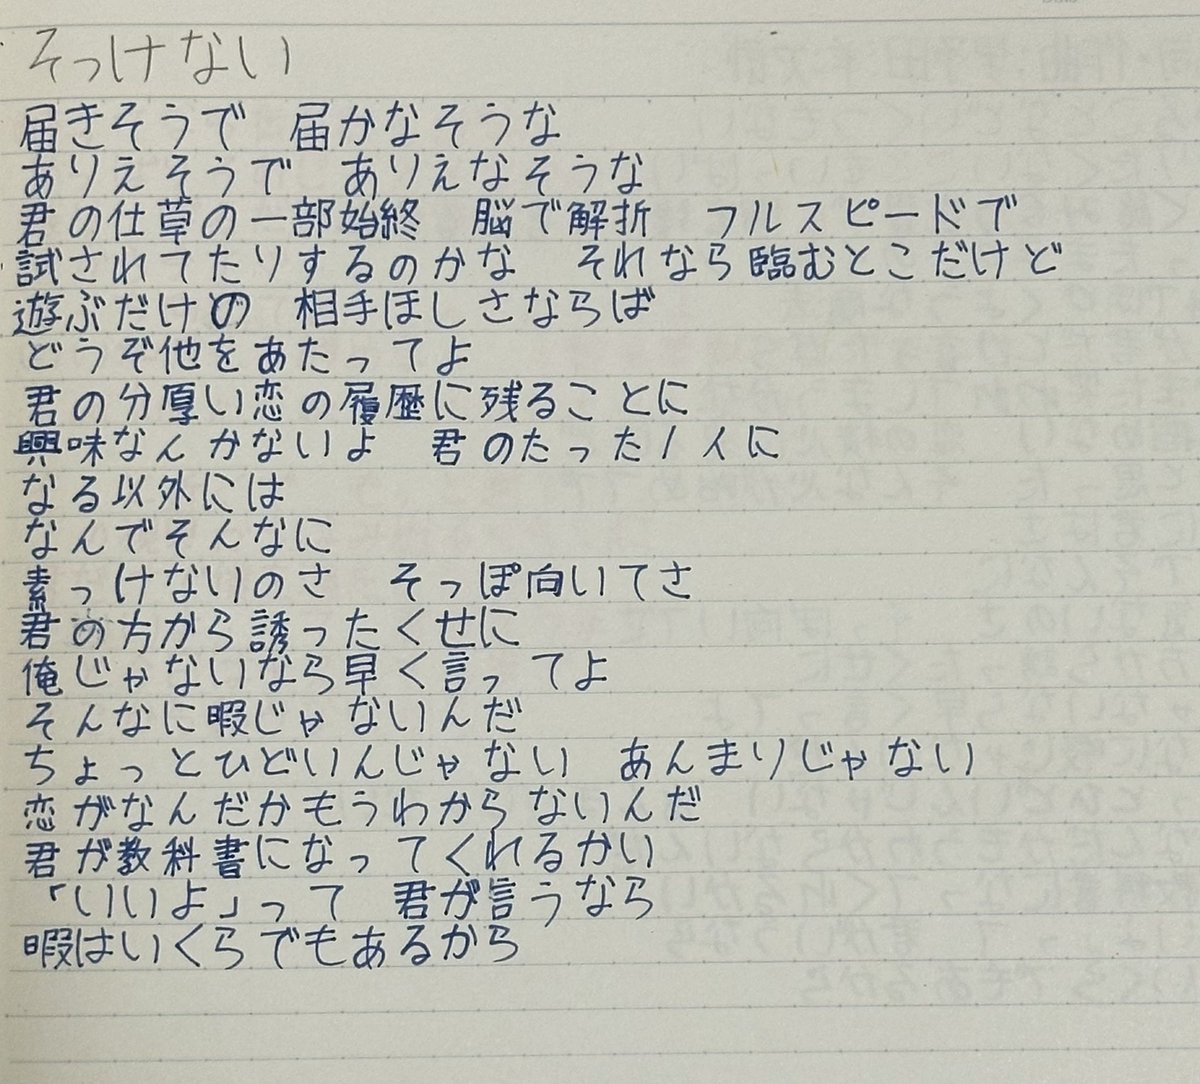 そっけない
届きそうで 届かなそうな
ありえそうで ありえなそうな
君の仕草の一部始終 脳で解折 フルスピードで
試されてたりするのかな それなら臨むとこだけど
遊ぶだけの 相手ほしさならば
どうぞ他をあたってよ
君の分厚い恋の履歴に残ることに
興味なんかないよ 君のたった1人に
なる以外には
なんでそんなに
素っけないのさ そっぽ向いてさ
君の方から誘ったくせに
俺じゃないなら早く言ってよ
そんなに暇じゃないんだ
ちょっとひどいんじゃない あんまりじゃない
恋がなんだかもうわからないんだ
君が教科書になってくれるかい
「いいよ」って 君が言うなら
暇はいくらでもあるから